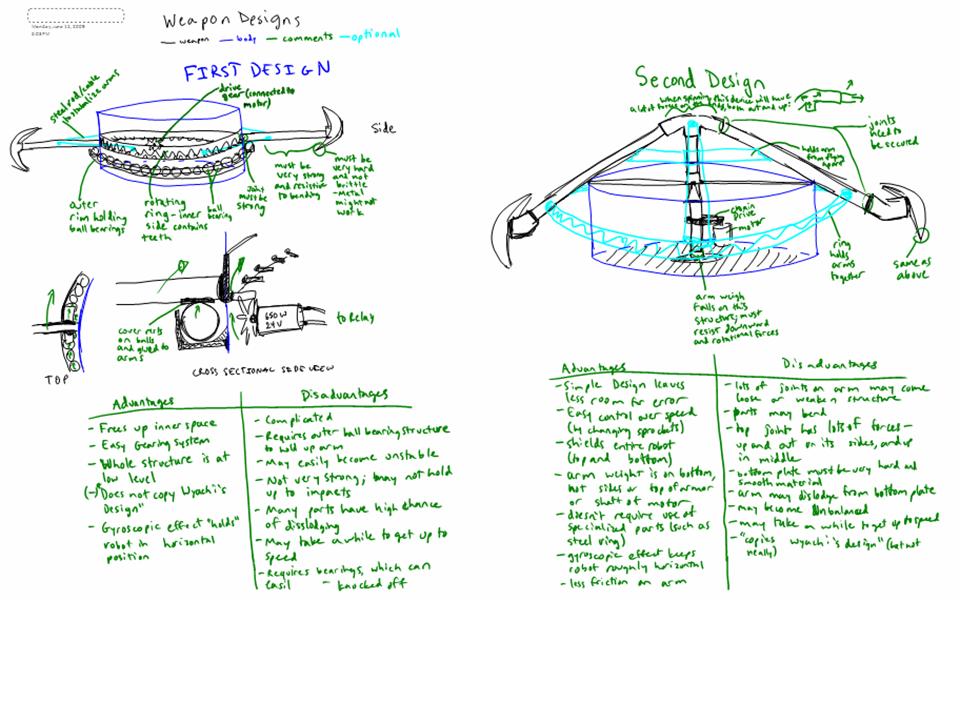 Weapon Designs
weapon body comments optional
FIRST DESIGN
steel rod/cable
to stabilize arms
drive
gear (connected to
motor)
Side
outer
rim holding
ball bearings
rotating
ring - inner
side contains
teeth
ball
bearing
Joint
must be
strong
must be
very strong
and resistive
to bending
must be
very hard
and not
brittle
-metal
might not
work
cover rests
on balls
and glued to
arms
650W
24V
to Relay
TOP
CROSS SECTIONAL SIDE VIEW
Advantages
- Frees up inner space
- Easy Gearing system
- Whole structure is at
low level
(-) "Does not copy Wyachi's
Design"
- Gyroscopic effect "holds"
robot in horizontal
position
Disadvantages
- Complicated
- Requires outer ball bearing structure
to hold up arm
- May easily become unstable
- Not very strong; may not hold
up to impacts
- Many parts have high chance
of dislodging
- May take a while to get up to
speed
- Requires bearings, which can
easil - knocked off
Second Design
when spinning, this device will have
a lot of force on the ends, both out and up!
joints
need to
be secured
holds arm
from flying
apart
chain
drive
motor
ring
holds
arms
together
same as
above
arm weigh
falls on this
structure; must
resist downward
and rotational forces
Advantages
- Simple Design leaves
less room for error
- Easy control over speed
(by changing sprockets)
- shields entire robot
(top and bottom)
- arm weight is on bottom,
not sides or top of armor
or shaft of motor
- doesn't require use of
specialized parts (such as
steel ring)
- gyroscopic effect keeps
robot roughly horizontal
- less friction on arm
Disadvantages
- lots of joints on arm may come
loose or weaken structure
- parts may bend
- top joint has lots of forces -
up and out on its sides, and up
in middle
- bottom plate must be very hard and
smooth material
- arm may dislodge from bottom plate
- may become unbalanced
- may take a while to get up to speed
- "copies Wyachi's design" (but not
really)